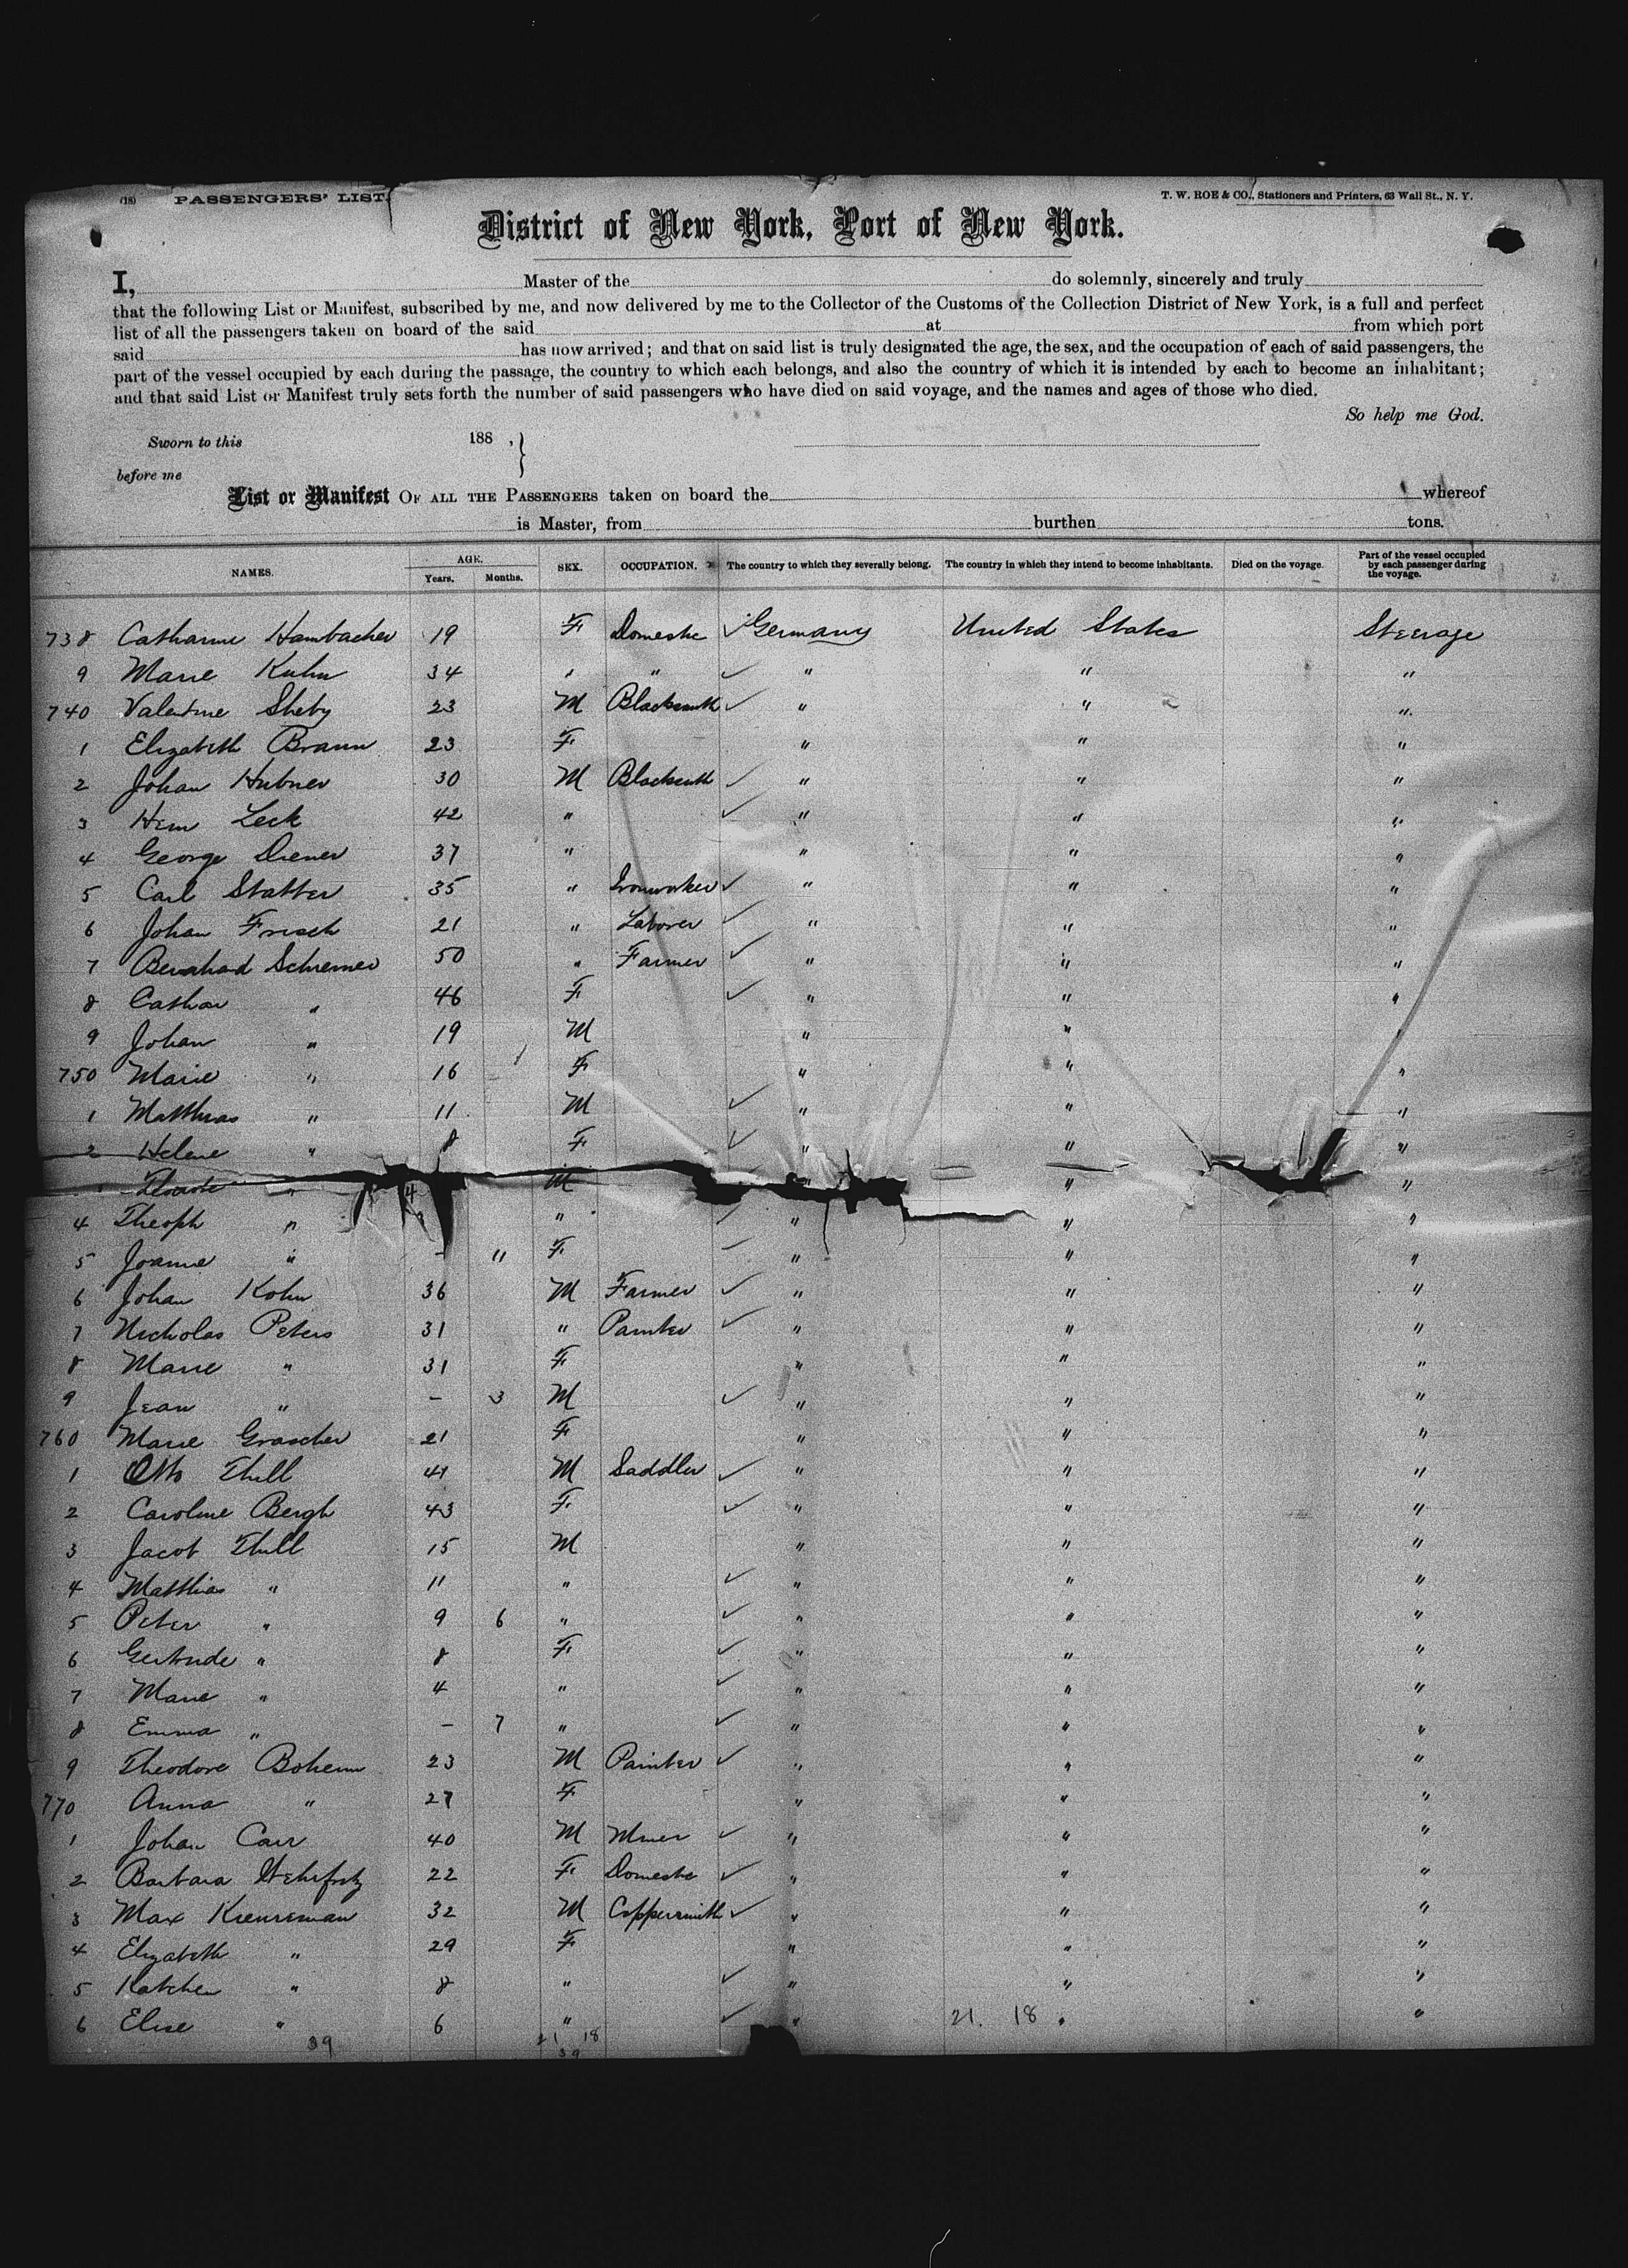 (18) PASSENGERS' LIST. T. W. ROE & CO., Stationers and Printers, 63 Wall St., N. Y.
District of New York, Port of New York.
I, Master of the do solemnly, sincerely and truly
that the following List or Manifest, subscribed by me, and now delivered by me to the Collector of the Customs of the Collection District of New York, is a full and perfect
list of all the passengers taken on board of the said at from which port
said has now arrived; and that on said list is truly designated the age, the sex, and the occupation of each of said passengers, the
part of the vessel occupied by each during the passage, the country to which each belongs, and also the country of which it is intended by each to become an inhabitant;
and that said List or Manifest truly sets forth the number of said passengers who have died on said voyage, and the names and ages of those who died.
So help me God.
Sworn to this 188 , }
before me
List or Manifest OF ALL THE PASSENGERS taken on board the whereof
is Master, from burthen tons.
NAMES. AGE. Years. Months. SEX. OCCUPATION. The country to which they severally belong. The country in which they intend to become inhabitants. Died on the voyage. Part of the vessel occupied by each passenger during the voyage.
738 Catharine Hambacher 19 F Domestic ✓ Germany United States Steerage
9 Marie Kuhn 34 " " ✓ " " "
740 Valentine Sheby 23 M Blacksmith ✓ " " "
1 Elizabeth Braun 23 F " " "
2 Johan Hubner 30 M Blacksmith ✓ " " "
3 Leck 42 " ✓ " " "
4 George Diener 37 " " " "
5 Carl Statter 35 " Ironworker ✓ " " "
6 Johan Frisch 21 " Laborer ✓ " " "
7 Bernhard Schreiner 50 " Farmer ✓ " " "
8 Cathar " 46 F ✓ " " "
9 Johan " 19 M " " "
750 Marie " 16 F " " "
1 Matthias " 11 M ✓ " " "
2 Helene " 8 F ✓ " " "
" 4 M " "
4 Theoph " " ✓ " " "
5 Joanne " - 11 F ✓ " " "
6 Johan Kohn 36 M Farmer ✓ " " "
7 Nicholas Peters 31 " Painter ✓ " " "
8 Marie " 31 F " " "
9 Jean " - 3 M ✓ " " "
760 Marie Grascher 21 F " " "
1 Otto Thill 41 M Saddler ✓ " " "
2 Caroline Bergh 43 F ✓ " " "
3 Jacob Thill 15 M " " "
4 Matthias " 11 " ✓ " " "
5 Peter " 9 6 " ✓ " " "
6 Gertrude " 8 F ✓ " " "
7 Marie " 4 " ✓ " " "
8 Emma " - 7 " ✓ " " "
9 Theodore Bohem 23 M Painter ✓ " " "
770 Anna " 27 F " " "
1 Johan Carr 40 M Miner ✓ " " "
2 Barbara 22 F Domestic ✓ " " "
3 Max 32 M Coppersmith ✓ " " "
4 Elizabeth " 29 F " " "
5 Katchen " 8 " ✓ " " "
6 Elise " 6 " ✓ " 21. 18 " "
39 21 18
39